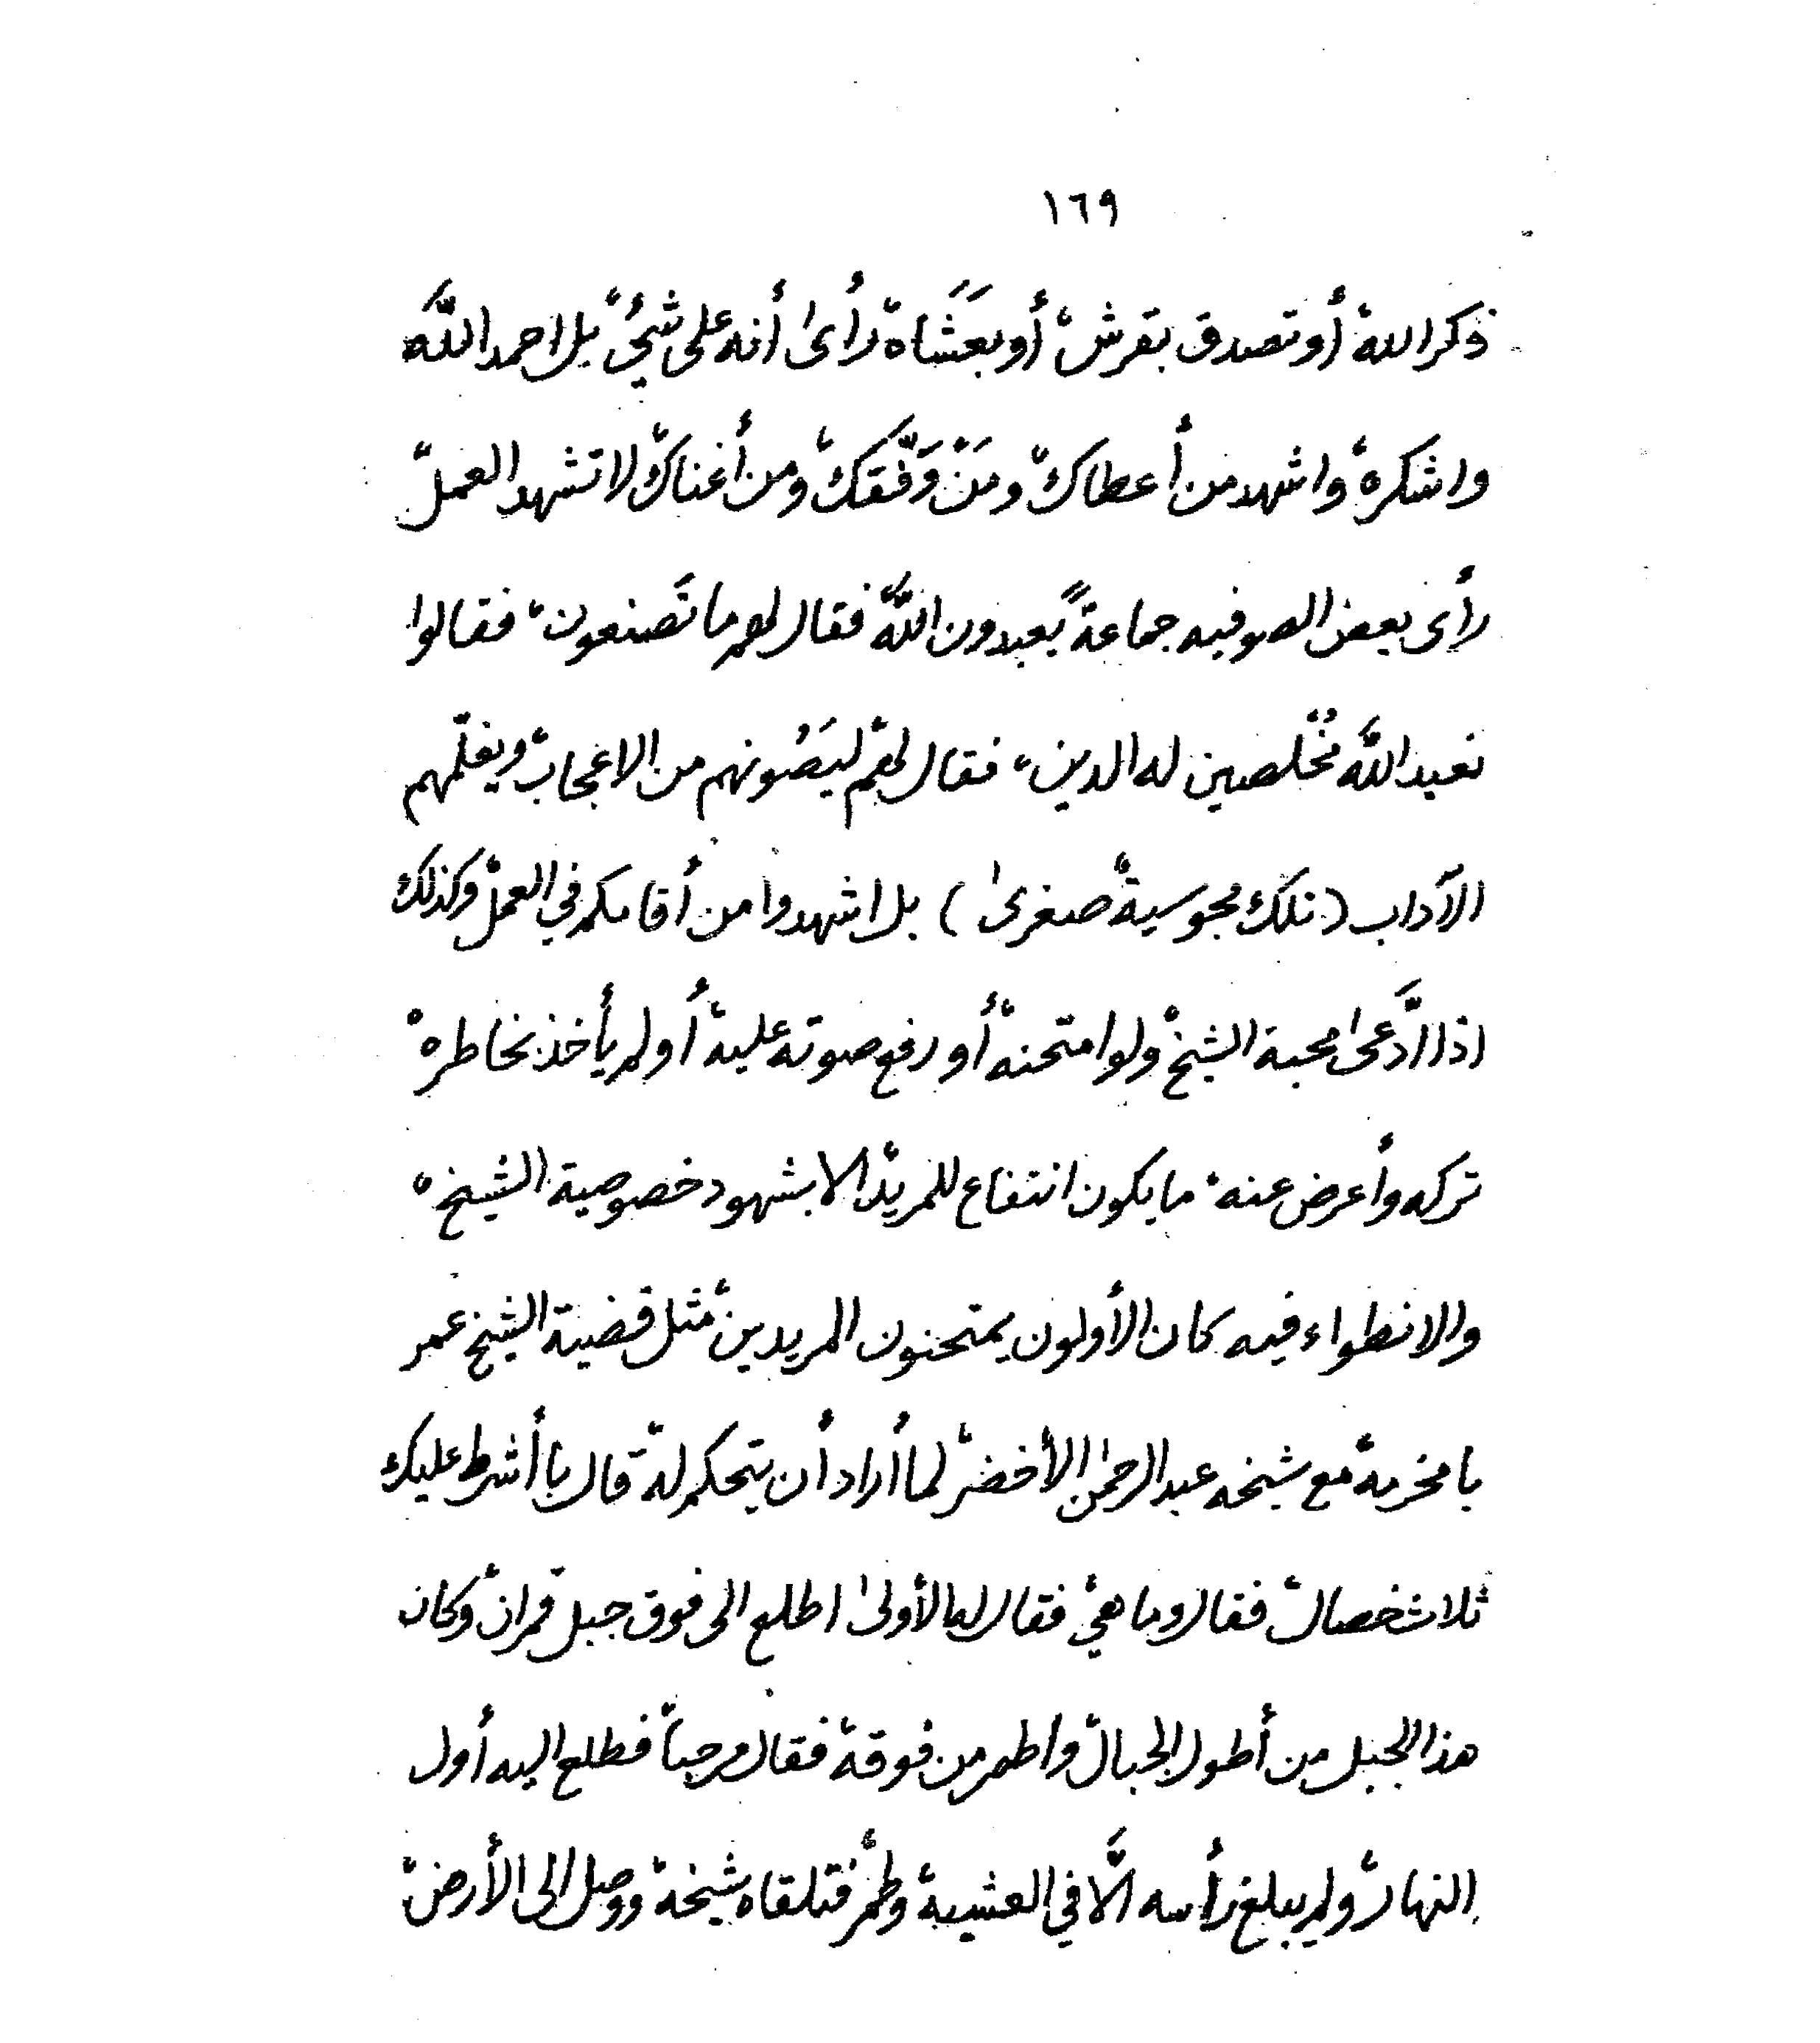 ١٦٩
ذكر الله أو تصدق بقرش أو بعَشَاه رأى أنه على شيء بل احمد اللَّه
واشكره واشهد من أعطاك ومَنْ وَفَّقَك ومن أغناك لا تشهد العمل
رأى بعض الصوفيه جماعةً يعبدون اللَّه فقال لهم ما تَصنعون، فقالوا
نعبد اللَّه مُخلصين له الدين، فقال لهم ليَصُونهم من الاعجاب ويعلّمهم
الآداب (تلك مجوسية صغرى) بل اشهدوا من أقامكم في العمل وكذلك
اذا ادَّعى محبة الشيخ ولو امتحنه أو رفع صوته عليه أو لم يأخذ بخاطره
تركه وأعرض عنه، ما يكون انتفاع للمريد الا بشهود خصوصية الشيخ
والانطواء فيه كان الأولون يمتحنون المريدين مثل قضية الشيخ عمر
بامخرمة مع شيخه عبدالرحمن الأخضر لما أراد أن يتحكم له قال با أشرط عليك
ثلاث خصال فقال وما هي فقال له الأولى اطلع الى فوق جبل قمران وكان
هذا الجبل من أطول الجبال واطمر من فوقه فقال مرحباً فطلع اليه أول
النهار ولم يبلغ رأسه الَّا في العشية وطمر فتلقاه شيخه ووصل الى الأرض